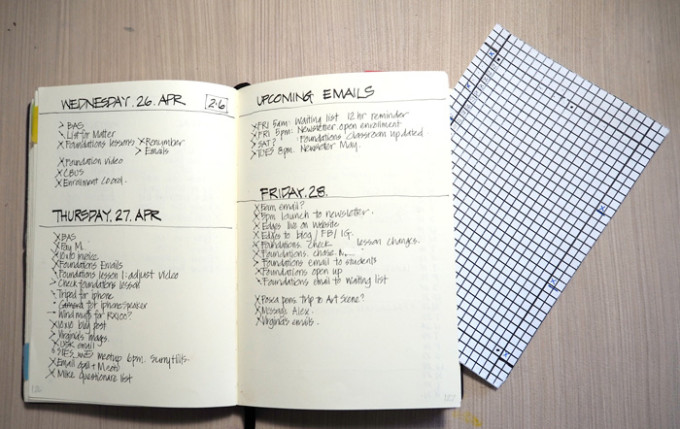 WEDNESDAY. 26. APR 2:6
> BAS
List for Matter
X Foundations lessons: X Renumber
> Emails
X Foundation Video
X CBUS
X Enrolment Coord.
THURSDAY. 27. APR
X BAS
X Pay M.
X 10x10
X Foundations Emails
Foundations lesson 1: adjust video
> Check foundations lesson
- Tripod for iphone
- for iphone speaker
- Windmuff for ?
X 10x10 blog post
X Virginia's images.
X USK email
meetup 6pm. Surry Hills
X Email
X Mike questionare list
UPCOMING EMAILS
X FRI 5am: Waiting list 12 hr reminder
X FRI 5pm: Newsletter: open enrolment
> SAT? : Foundations' Classroom updated.
> TUES 8pm. Newsletter May.
FRIDAY. 28.
X 8am email?
X 5pm launch to newsletter.
X Edges live on website
X Edges to blog / FB / IG.
X Foundations. Check lesson changes.
X Foundations.
X Foundations email to students
X Foundations open up
X Foundations email to waiting list
X Posca pens. Trip to Art Scene?
X Missing: Alex.
X Virginia's emails.